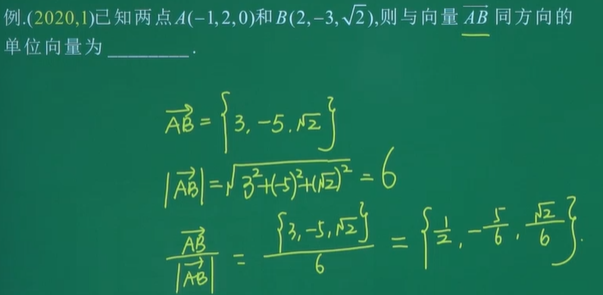 例.(2020,1)已知两点A(−1,2,0)和B(2,−3,√2),则与向量 \overrightarrow{AB} 同方向的
单位向量为 ________ .
\overrightarrow{AB} = {3, -5, √2}
|\overrightarrow{AB}| = √(3²+(-5)²+(√2)²) = 6
\frac{\overrightarrow{AB}}{|\overrightarrow{AB}|} = \frac{{3, -5, √2}}{6} = {\frac{1}{2}, -\frac{5}{6}, \frac{√2}{6}}.